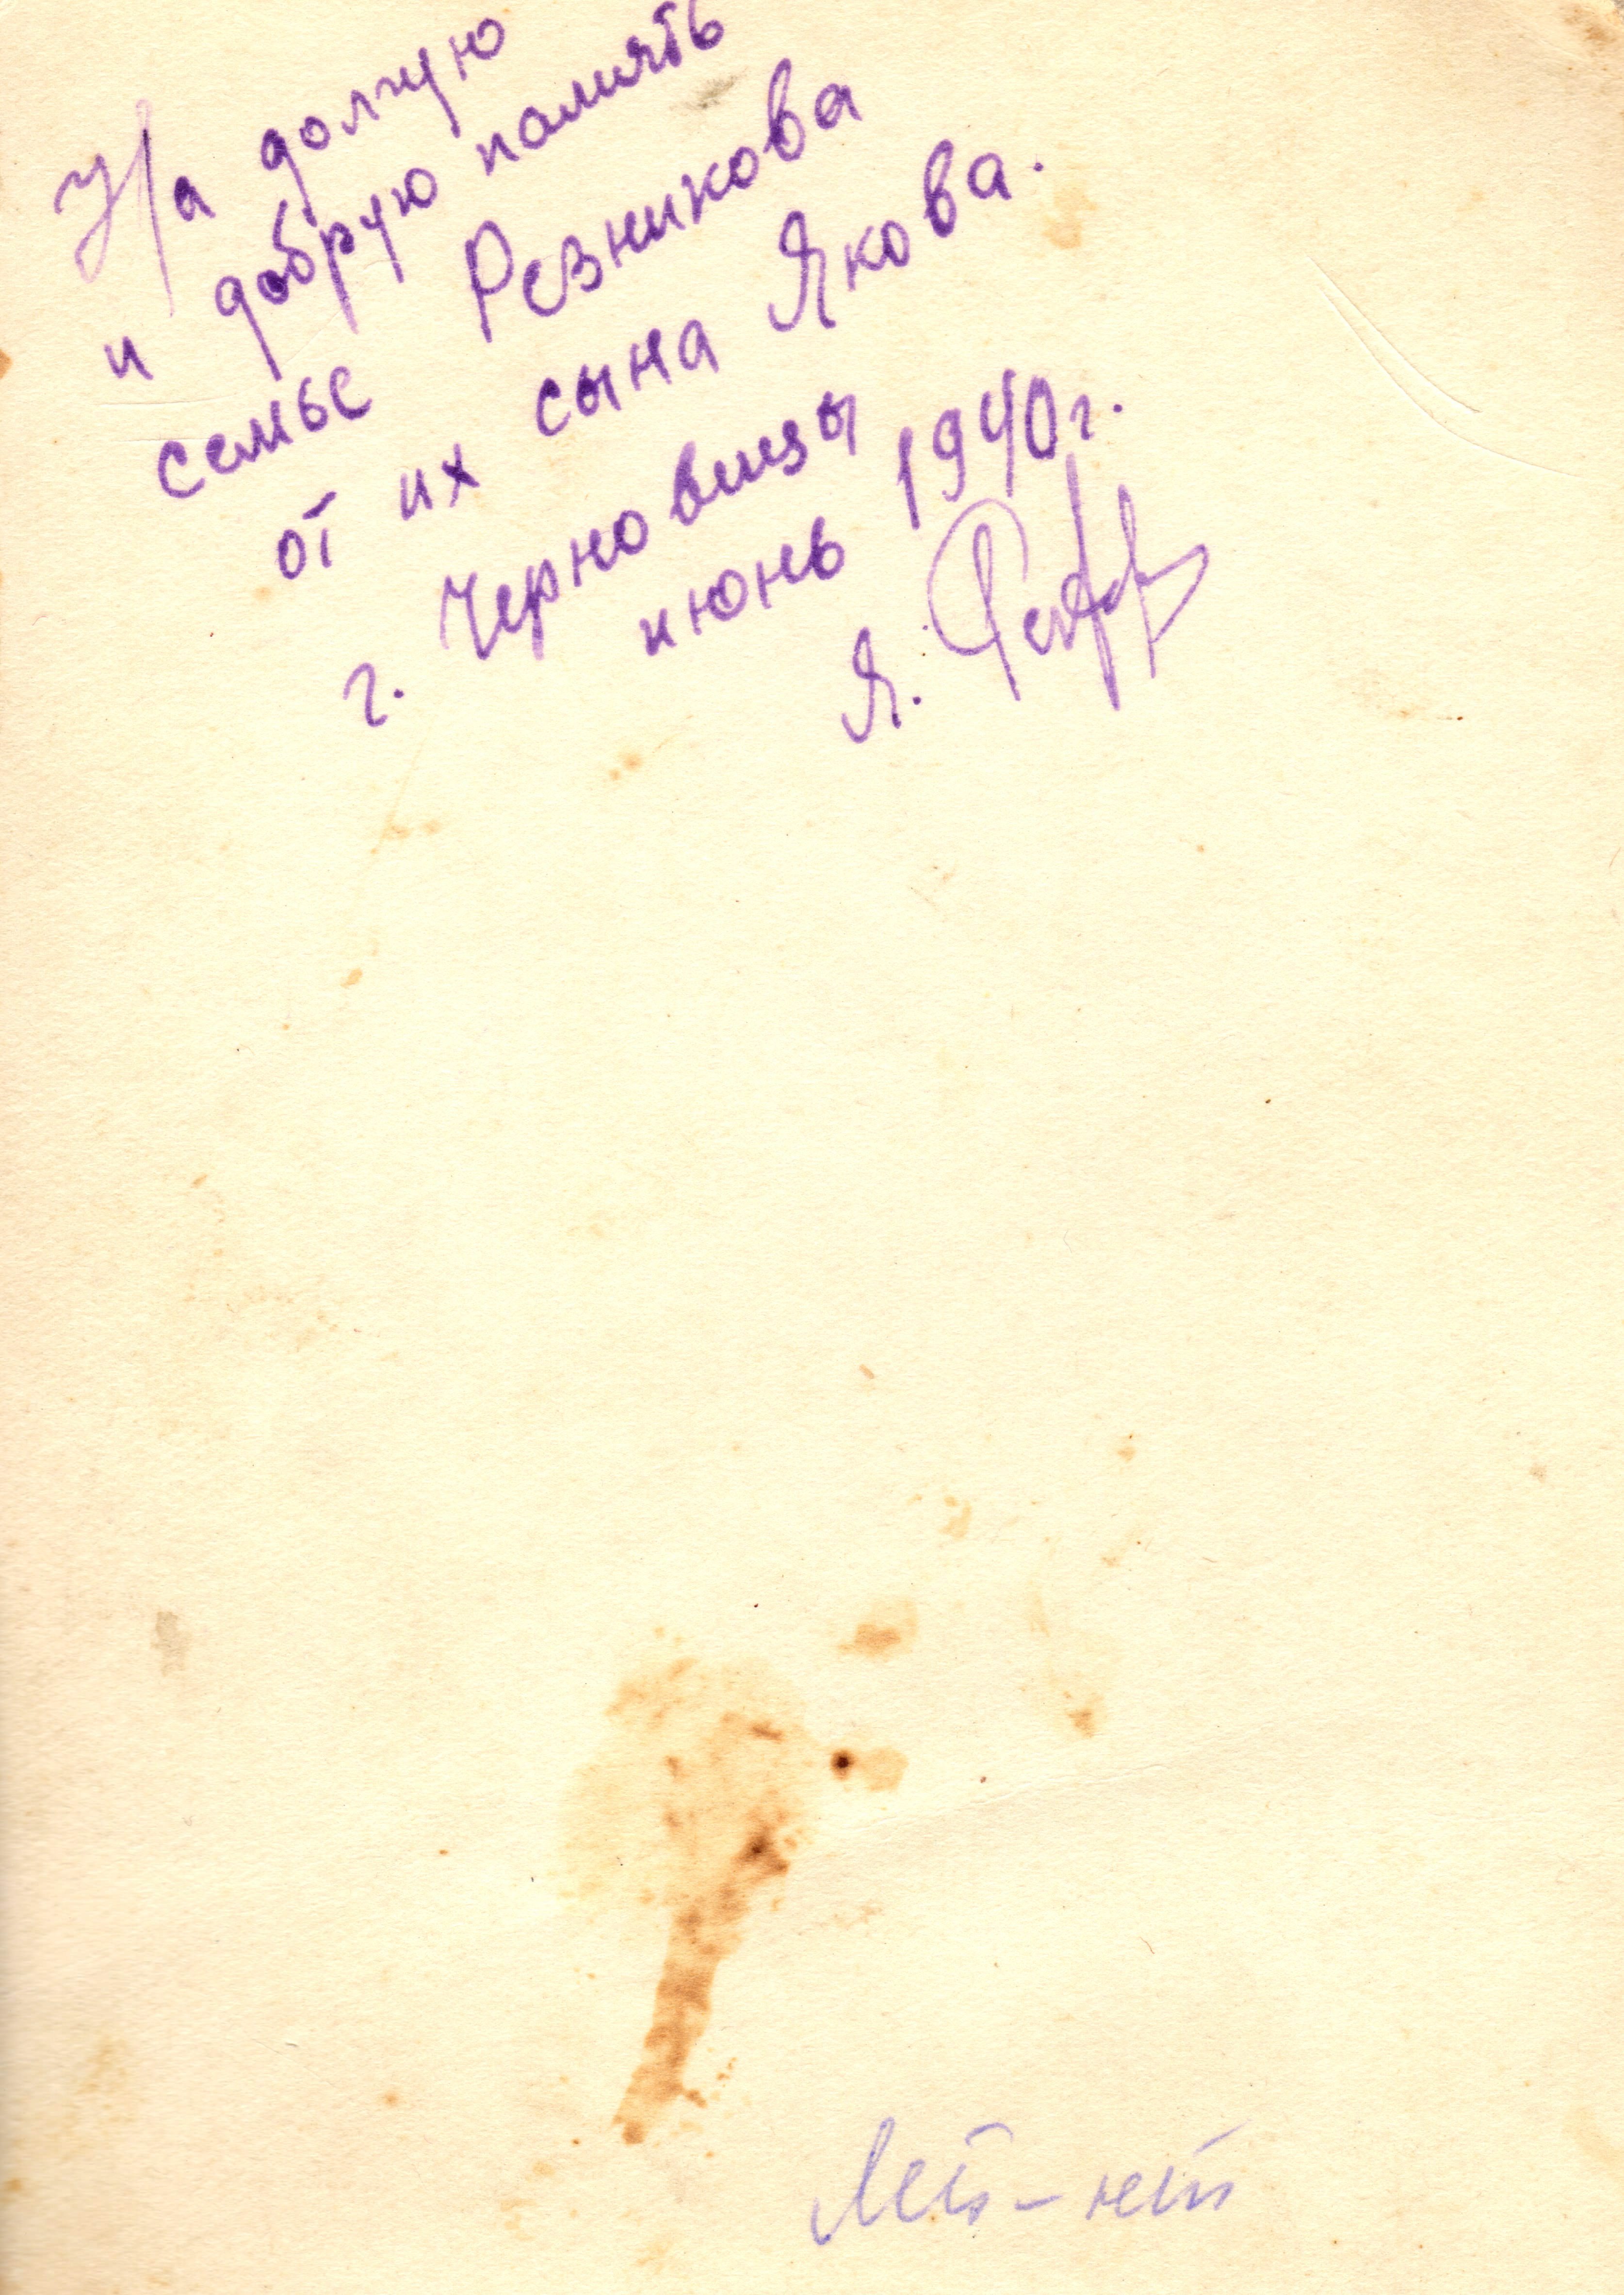 На долгую
и добрую память
семье Резникова
от их сына Якова.
г. Черновицы
июнь 1940 г.
Я.